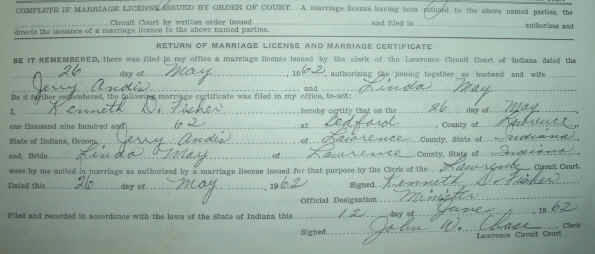 COMPLETE IF MARRIAGE LICENSE ISSUED BY ORDER OF COURT. A marriage license having been refused to the above named parties, the
Circuit Court by written order issued and filed in authorizes and
directs the issuance of a marriage license to the above named parties.
RETURN OF MARRIAGE LICENSE AND MARRIAGE CERTIFICATE
BE IT REMEMBERED, there was filed in my office a marriage license issued by the clerk of the Lawrence Circuit Court of Indiana dated the
26 day of May 1962, authorizing the joining together as husband and wife
Jerry Andis and Linda May
Be it further remembered, the following marriage certificate was filed in my office, to-wit:
I, Kenneth D. Fisher hereby certify that on the 26 day of May
one thousand nine hundred and 62 at Bedford, County of Lawrence,
State of Indiana, Groom, Jerry Andis of Lawrence County, State of Indiana
and, Bride Linda May of Lawrence County, State of Indiana
were by me united in marriage as authorized by a marriage license issued for that purpose by the Clerk of the Lawrence Circuit Court.
Dated this 26 day of May, 1962 Signed Kenneth D. Fisher
Official Designation Minister
Filed and recorded in accordance with the laws of the State of Indiana this 12 day of June, 1962
Signed John W. Chase Clerk
Lawrence Circuit Court